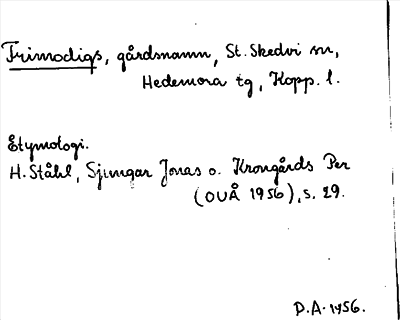 Frimodigs, gårdsnamn, St. Skedvi sn,
Hedemora tg, Kopp. l.
Etymologi.
H. Ståhl, Sjungar Jonas o. Krongårds Per
(OUÅ 1956), s. 29.
D.A. 1956.